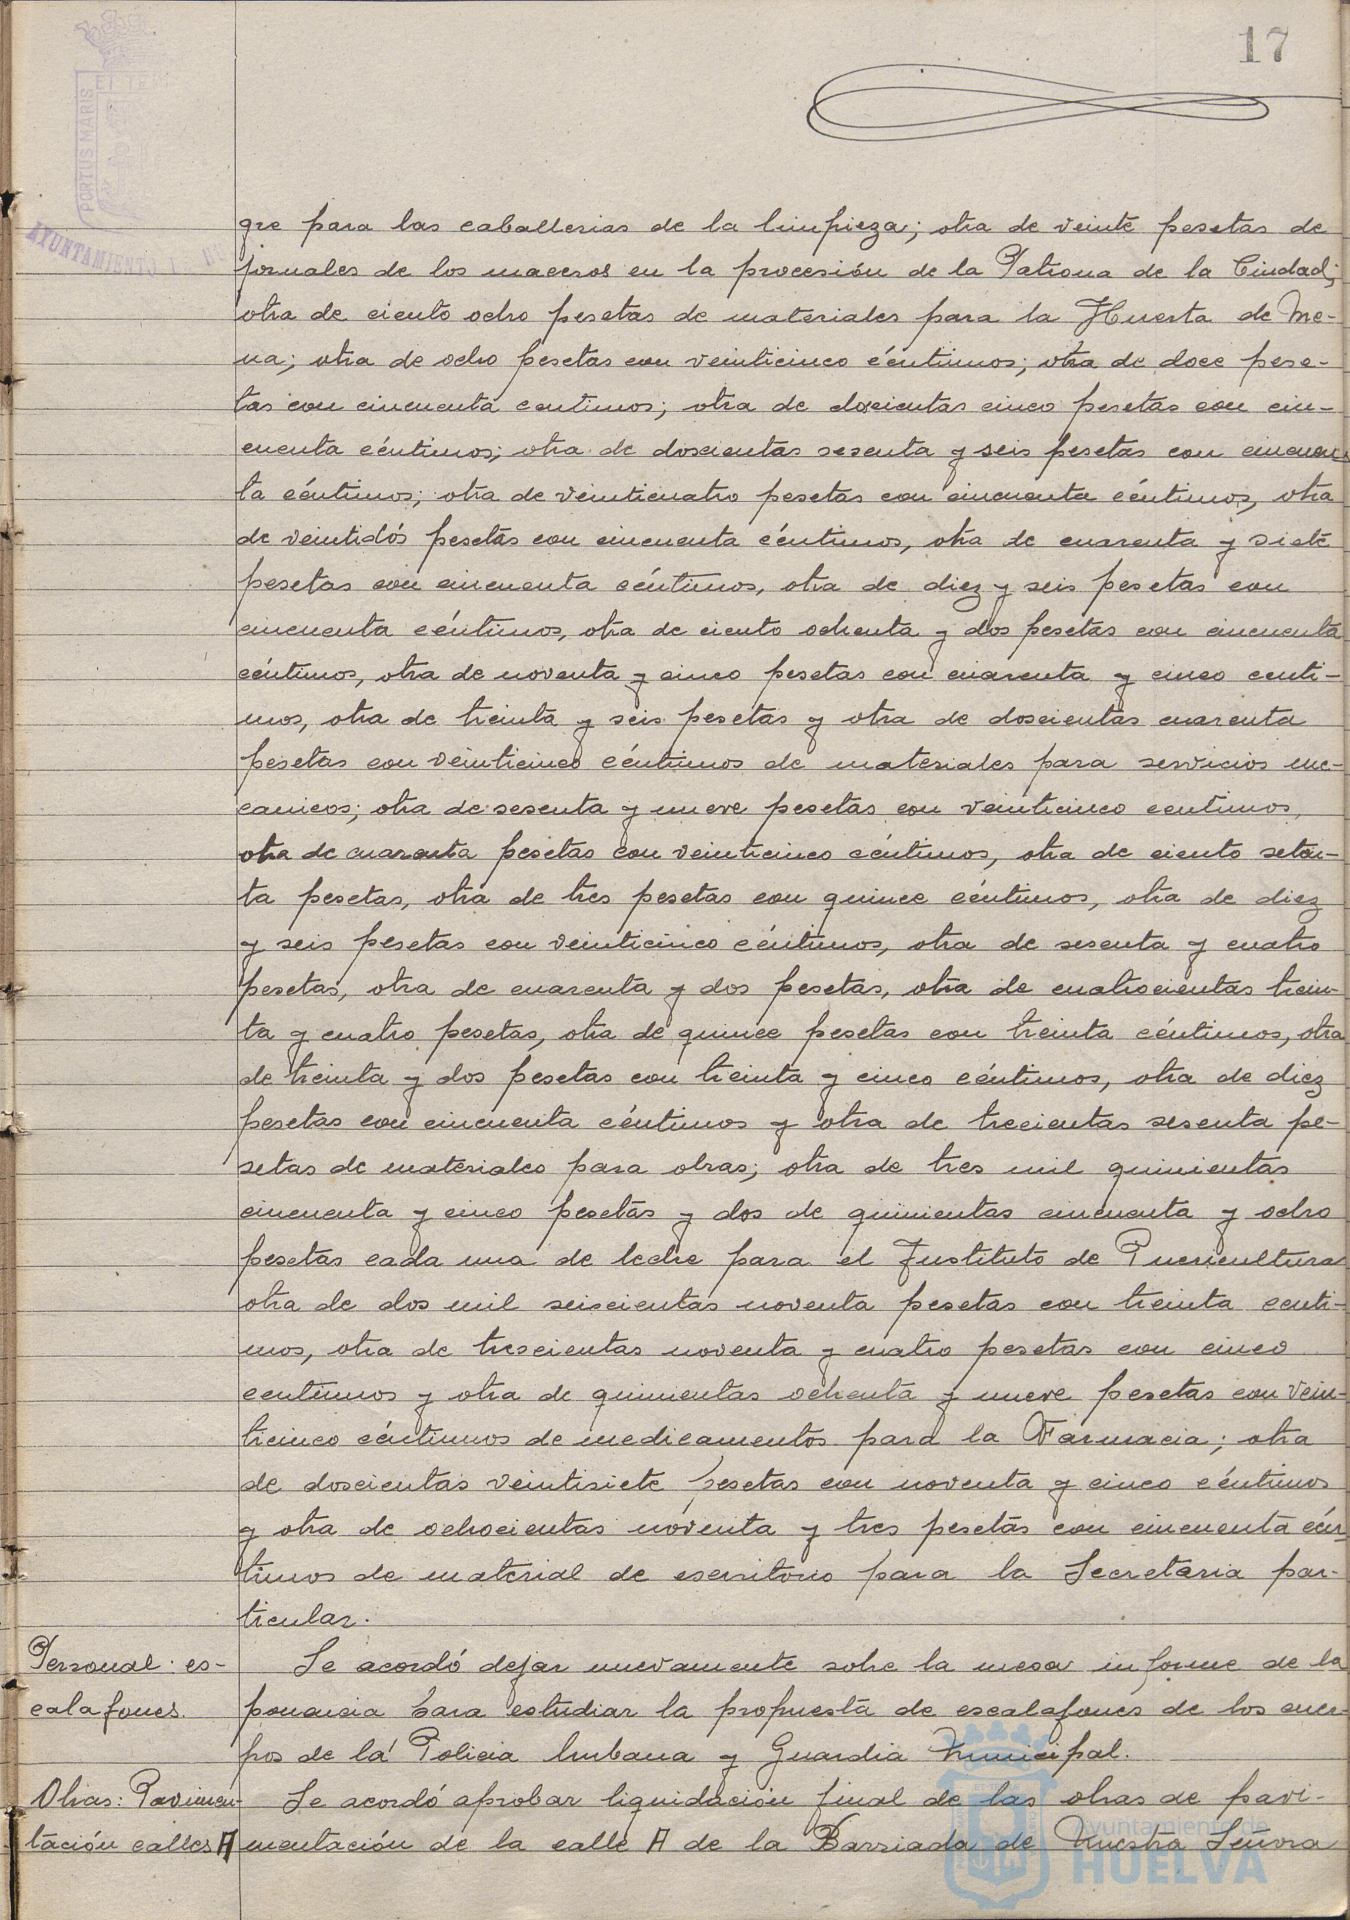 17
PORTUS MARIS
AYUNTAMIENTO
gre para las caballerias de la limpieza; otra de veinte pesetas de
jornales de los maceros en la procesión de la Patrona de la Ciudad;
otra de ciento ocho pesetas de materiales para la Huerta de Me-
na; otra de ocho pesetas con veinticinco céntimos; otra de doce pese-
tas con cincuenta centimos; otra de doscientas cinco pesetas con cin-
cuenta céntimos; otra de doscientas sesenta y seis pesetas con cincuen
ta céntimos; otra de veinticuatro pesetas con cincuenta céntimos, otra
de veintidós pesetas con cincuenta céntimos, otra de cuarenta y siete
pesetas con cincuenta céntimos, otra de diez y seis pesetas con
cincuenta céntimos, otra de ciento ochenta y dos pesetas con cincuenta
céntimos, otra de noventa y cinco pesetas con cuarenta y cinco centi-
mos, otra de treinta y seis pesetas y otra de doscientas cuarenta
pesetas con veinticinco céntimos de materiales para servicios me-
canicos; otra de sesenta y nueve pesetas con veinticinco centimos,
otra de cuarenta pesetas con veinticinco céntimos, otra de ciento seten-
ta pesetas, otra de tres pesetas con quince céntimos, otra de diez
y seis pesetas con veinticinco céntimos, otra de sesenta y cuatro
pesetas, otra de cuarenta y dos pesetas, otra de cuatrocientas trein-
ta y cuatro pesetas, otra de quince pesetas con treinta céntimos, otra
de treinta y dos pesetas con treinta y cinco céntimos, otra de diez
pesetas con cincuenta céntimos y otra de trecientas sesenta pe-
setas de materiales para obras; otra de tres mil quinientas
cincuenta y cinco pesetas y dos de quinientas cincuenta y ocho
pesetas cada una de leche para el Instituto de Puericultura
otra de dos mil seiscientas noventa pesetas con treinta centi-
mos, otra de trescientas noventa y cuatro pesetas con cinco
centimos y otra de quinientas ochenta y nueve pesetas con vein-
ticinco céntimos de medicamentos para la Farmacia; otra
de doscientas veintisiete pesetas con noventa y cinco céntimos
y otra de ochocientas noventa y tres pesetas con cincuenta cén-
timos de material de escritorio para la Secretaria par-
ticular.
Personal: es-
calafones.
Se acordó dejar nuevamente sobre la mesa informe de la
ponencia para estudiar la propuesta de escalafones de los cuer-
pos de la Policia Urbana y Guardia Municipal.
Obras: Pavimen-
tación calles A
Se acordó aprobar liquidación final de las obras de pavi-
mentación de la calle A de la Barriada de Nuestra Señora
Ayuntamiento de
HUELVA